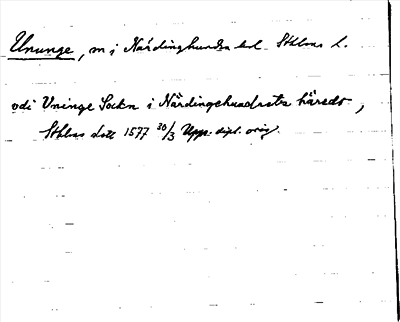 Ununge, sn i Närdinghundra hd. Sthlms l.
vdi Vninge Sockn i Närdingehundratz häredt,
Sthlms slott 1577 30/3 Upps. dipl. orig.